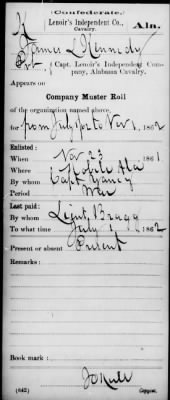 (Confederate.)
K Lenoir's Independent Co., Cavalry. Ala.
James L Kennedy
Pvt, Capt. Lenoir's Independent Company, Alabama Cavalry.
Appears on
Company Muster Roll
of the organization named above,
for from July 1 to Nov 1, 1862
Enlisted:
When Nov 23, 1861
Where Mobile Ala
By whom Capt Yancy
Period War
Last paid:
By whom Lieut, Bragg
To what time July 1, 1862
Present or absent Present
Remarks:
Book mark:
(642) Copyist.